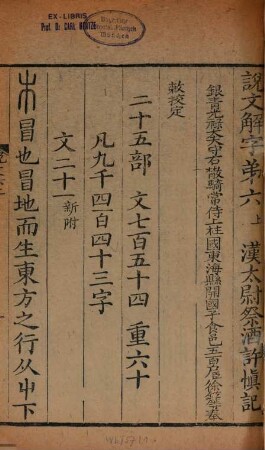 EX-LIBRIS
Prof. Dr. CARL HENTZE
說文解字弟六上 漢太尉祭酒許慎記
銀青光祿大夫守右散騎常侍上柱國東海縣開國子食邑五百戶臣徐鉉等奉
敕校定
二十五部 文七百五十四 重六十一
凡九千四百四十三字
文二十新附
木冒也冒地而生東方之行从屮下